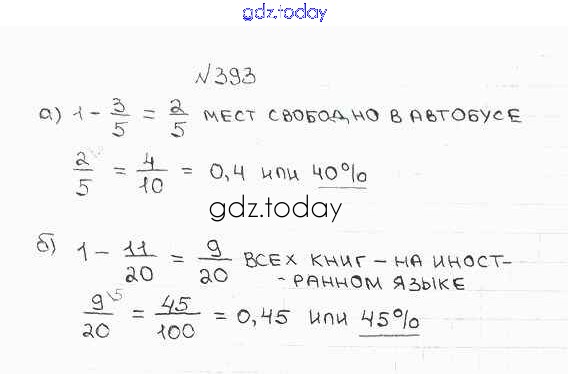 gdz.today
№393
а) 1 - 3/5 = 2/5 мест свободно в автобусе
2/5 = 4/10 = 0,4 или 40%
gdz.today
б) 1 - 11/20 = 9/20 всех книг - на иност-
- ранном языке
9\5/20 = 45/100 = 0,45 или 45%